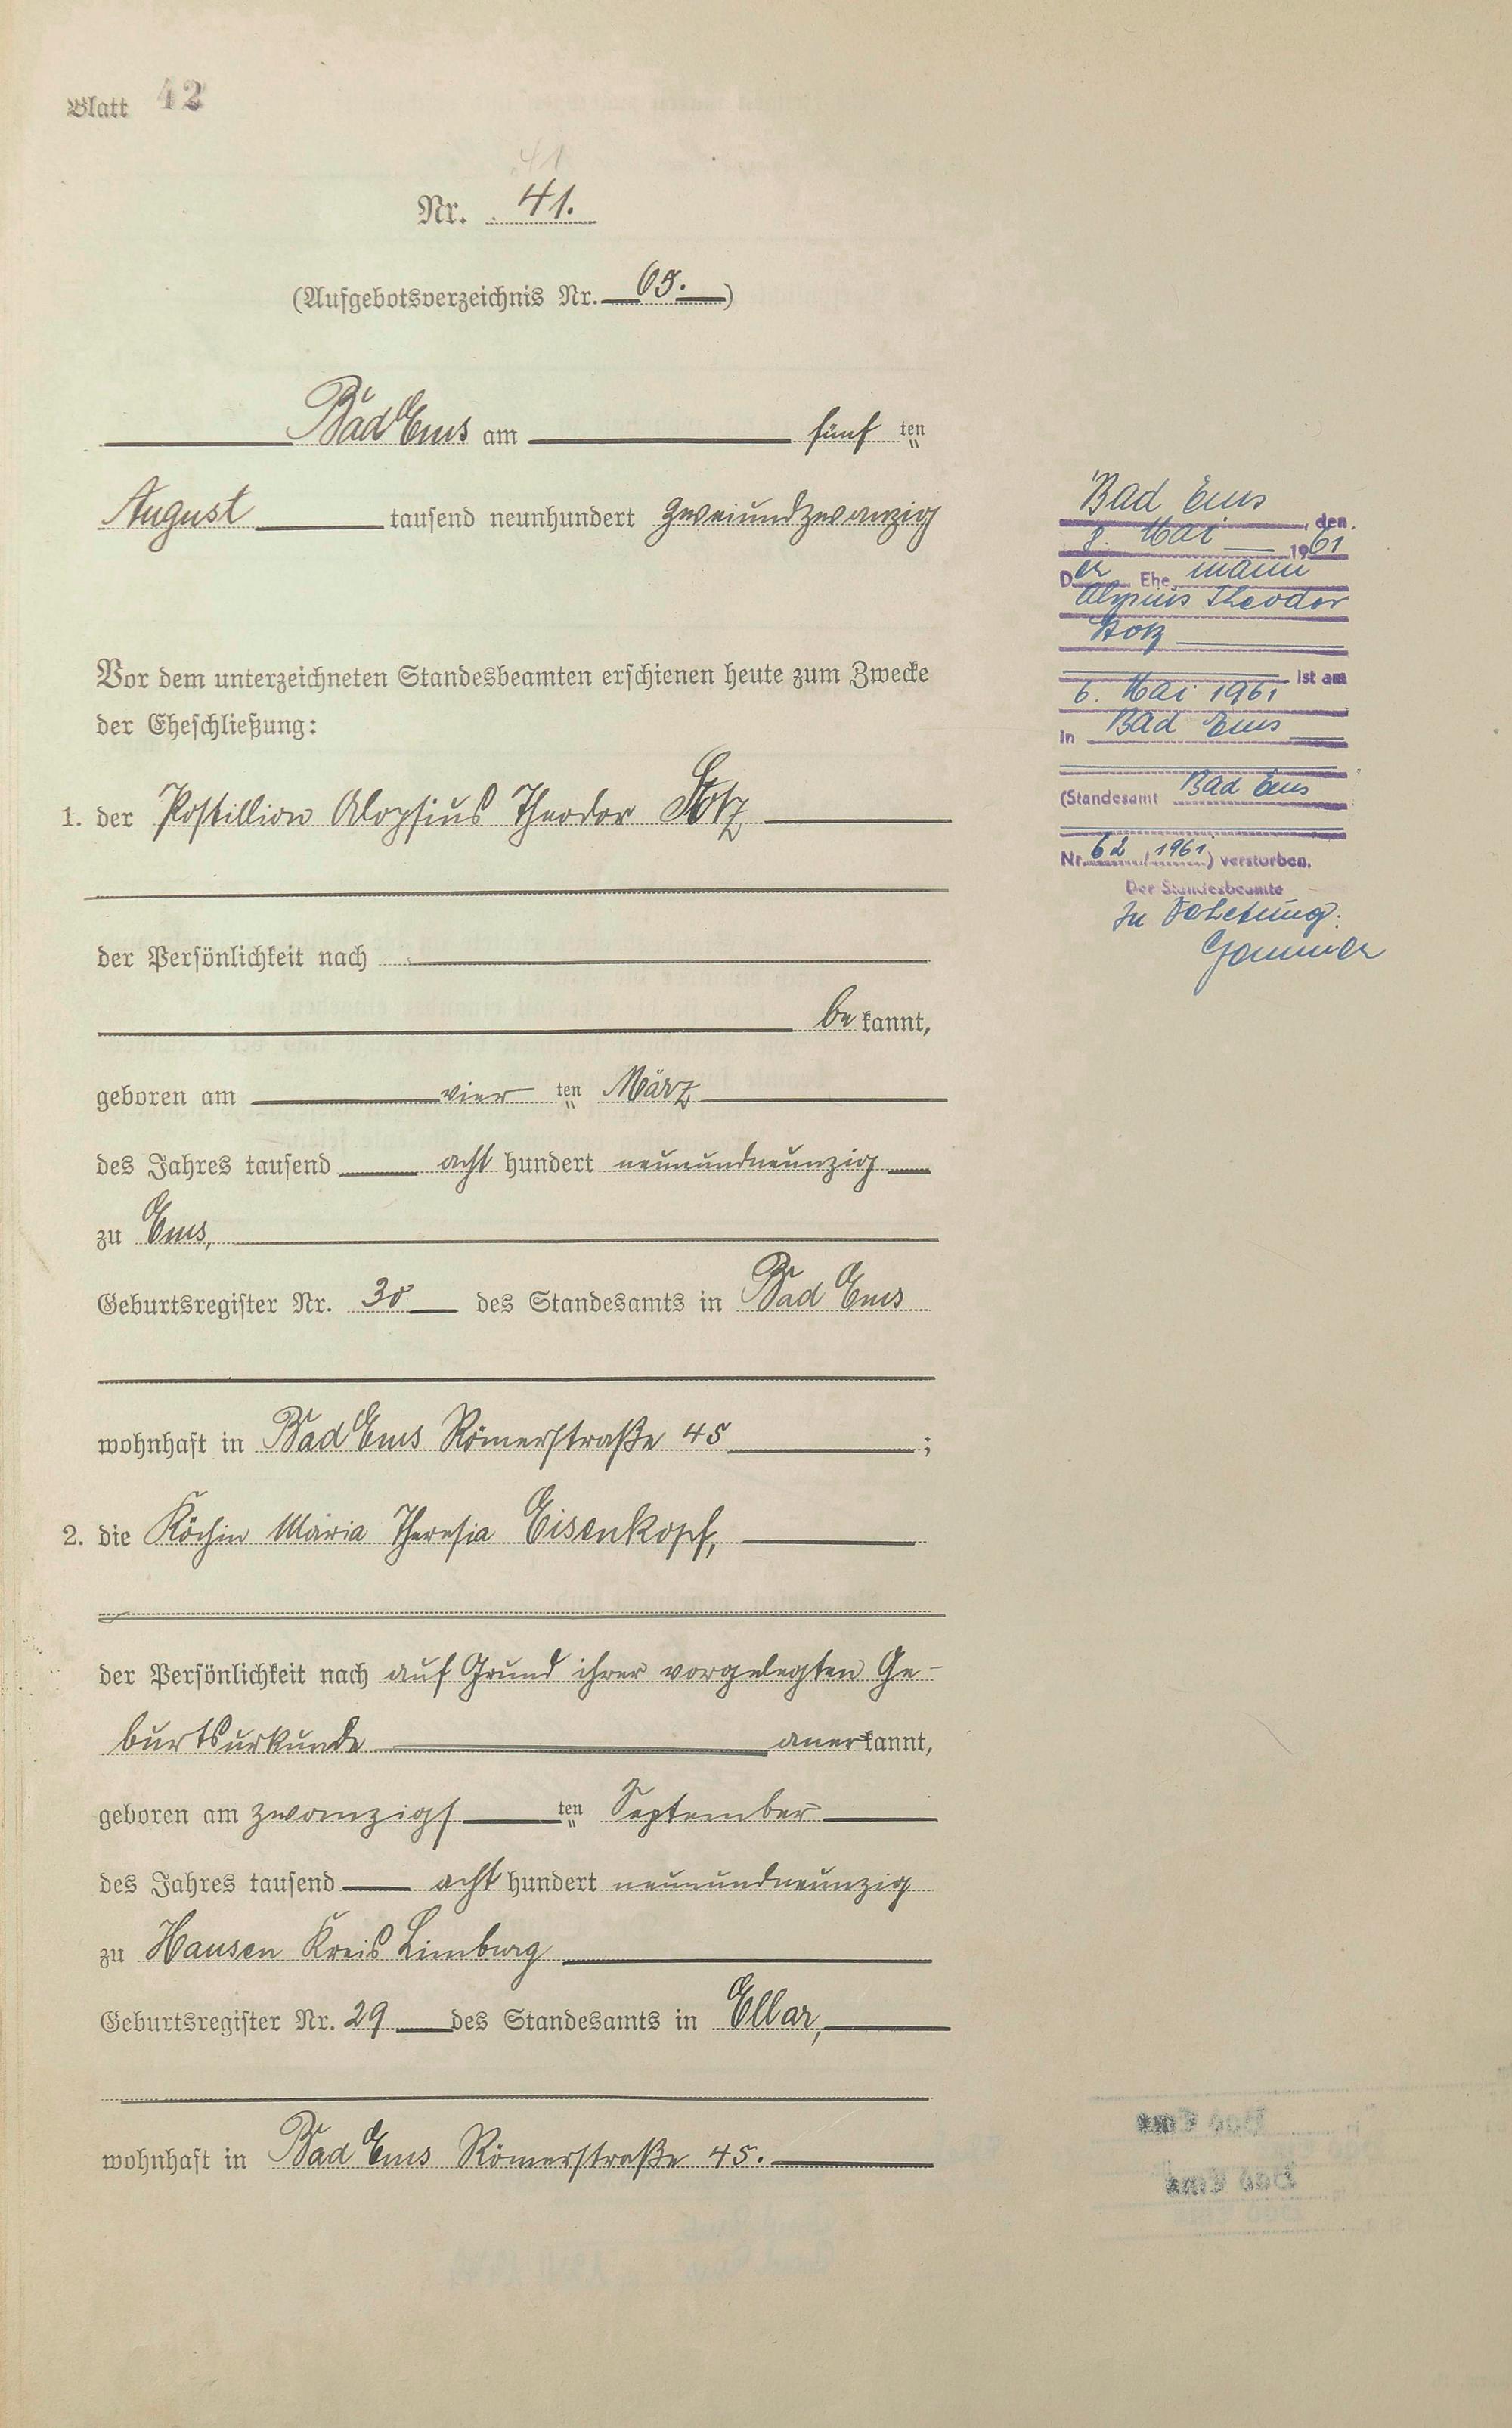 Blatt 42
41
Nr. 41.
(Aufgebotsverzeichnis Nr. 65.)
Bad Ems am fünf ten
August tausend neunhundert zweiundzwanzig
Vor dem unterzeichneten Standesbeamten erschienen heute zum Zwecke
der Eheschließung:
1. der Postillion Aloysius Theodor Stotz
der Persönlichkeit nach
be kannt,
geboren am vier ten März
des Jahres tausend acht hundert neunundneunzig
zu Ems,
Geburtsregister Nr. 30 des Standesamts in Bad Ems
wohnhaft in Bad Ems Römerstraße 45 ;
2. die Köchin Maria Theresia Eisenkopf,
der Persönlichkeit nach auf Grund ihrer vorgelegten Ge-
burtsurkunde anerkannt,
geboren am zwanzigs ten September
des Jahres tausend acht hundert neunundneunzig
zu Hausen Kreis Limburg
Geburtsregister Nr. 29 des Standesamts in Ellar,
wohnhaft in Bad Ems Römerstraße 45.
Bad Ems, den
8. Mai 1961
Der Ehemann
Aloysius Theodor
Stotz
ist am
6. Mai 1961
in Bad Ems
(Standesamt Bad Ems
Nr. 62 / 1961) verstorben.
Der Standesbeamte
In Vertretung: